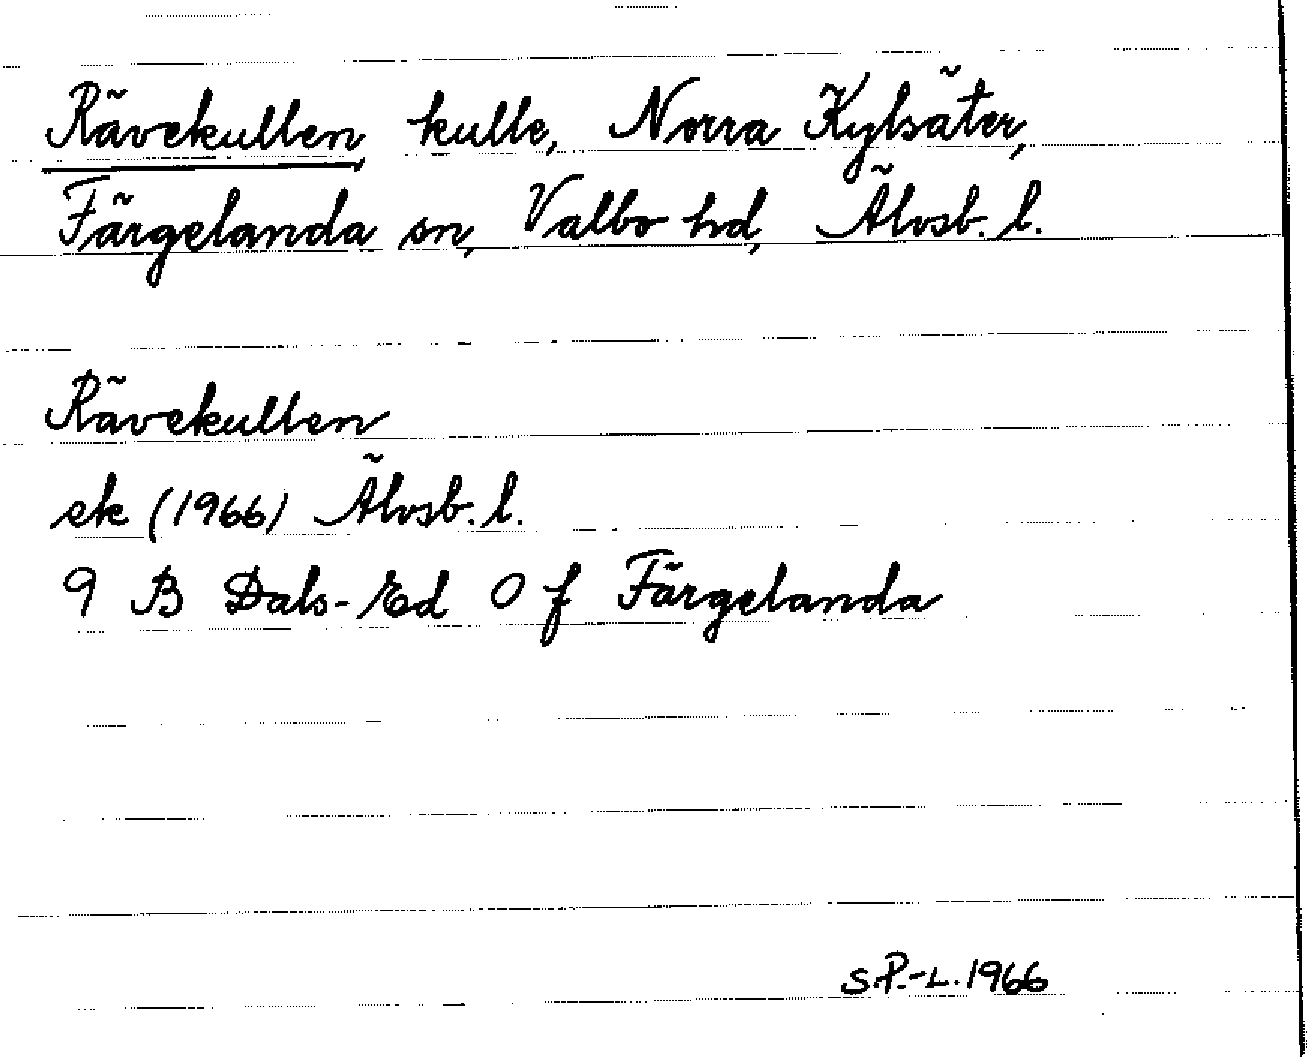 Rävekullen, kulle, Norra Kylsäter,
Färgelanda sn, Valbo hd, Älvsb. l.
Rävekullen
ek (1966) Älvsb. l.
9 B Dals-Ed 0 f Färgelanda
S.P.-L. 1966